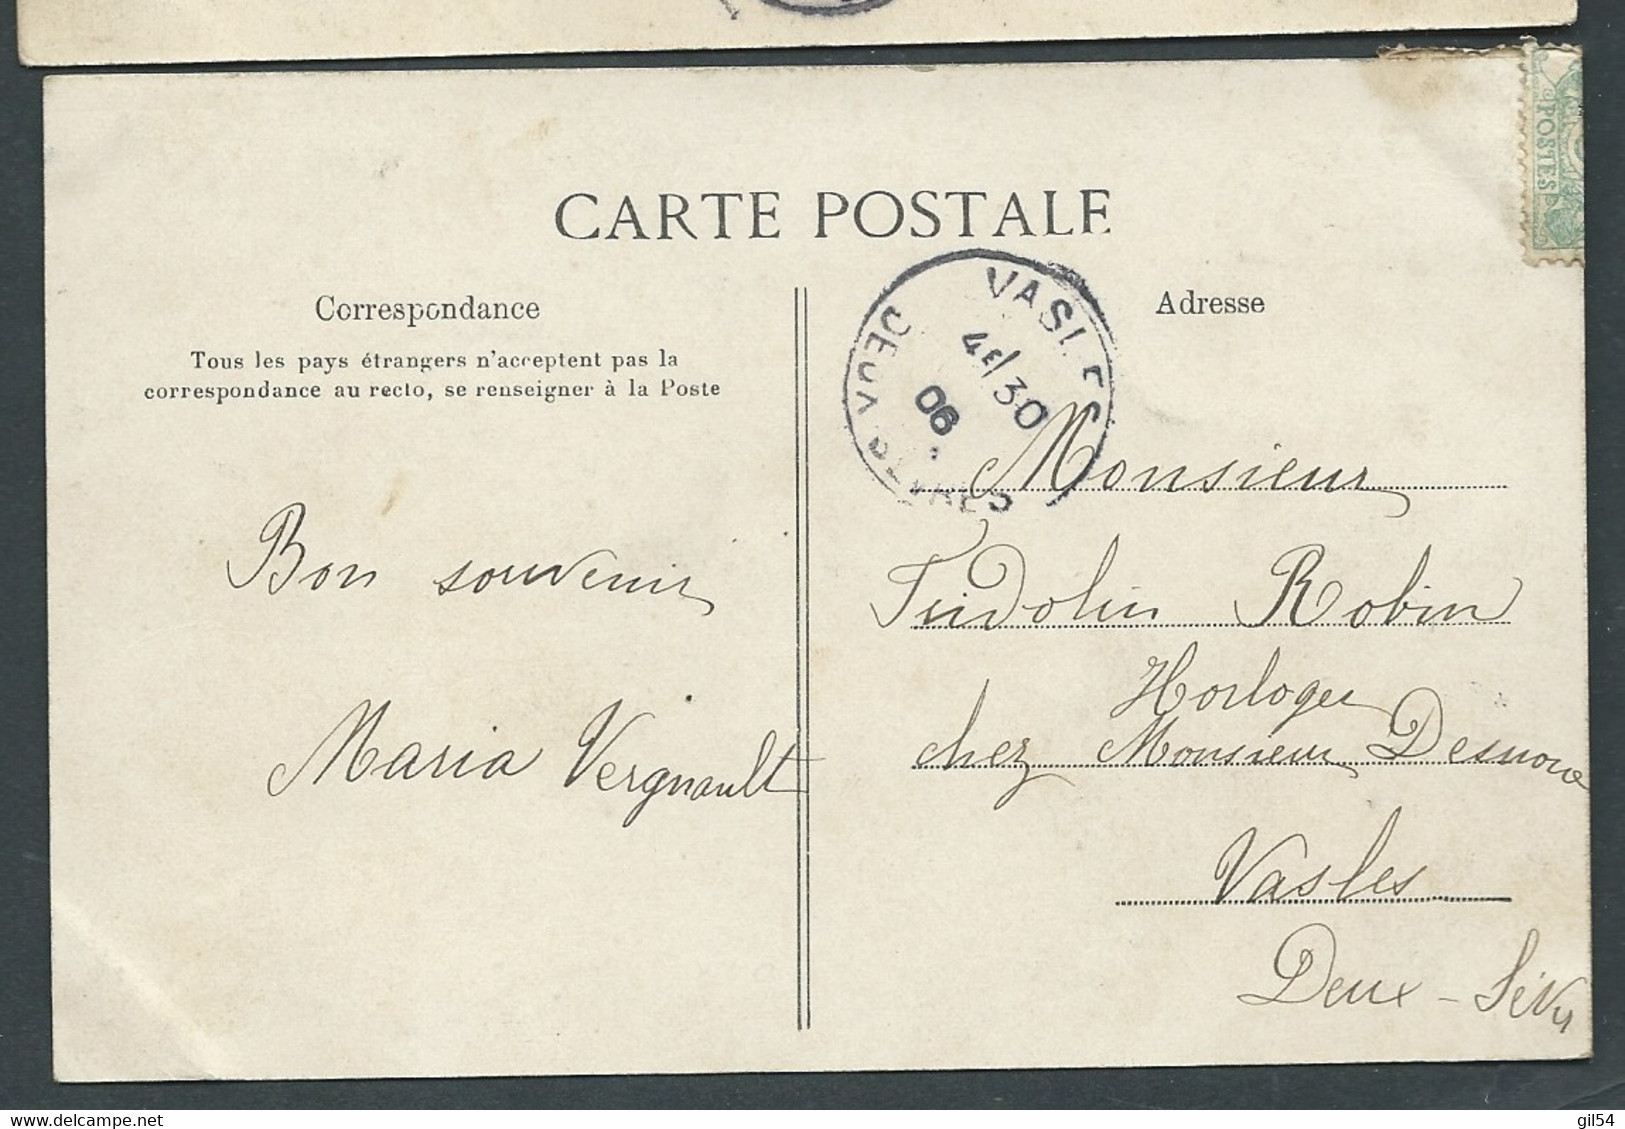 CARTE POSTALE
Correspondance
Adresse
Tous les pays étrangers n'acceptent pas la
correspondance au recto, se renseigner à la Poste
POSTES
VASLES
DEUX SÈVRES
4E/30
06
Bon souvenir
Maria Vergnault
Monsieur
Fridolin Robin
Horloger
chez Monsieur Desnoue
Vasles
Deux-Sèvres
delcampe.net
gil54